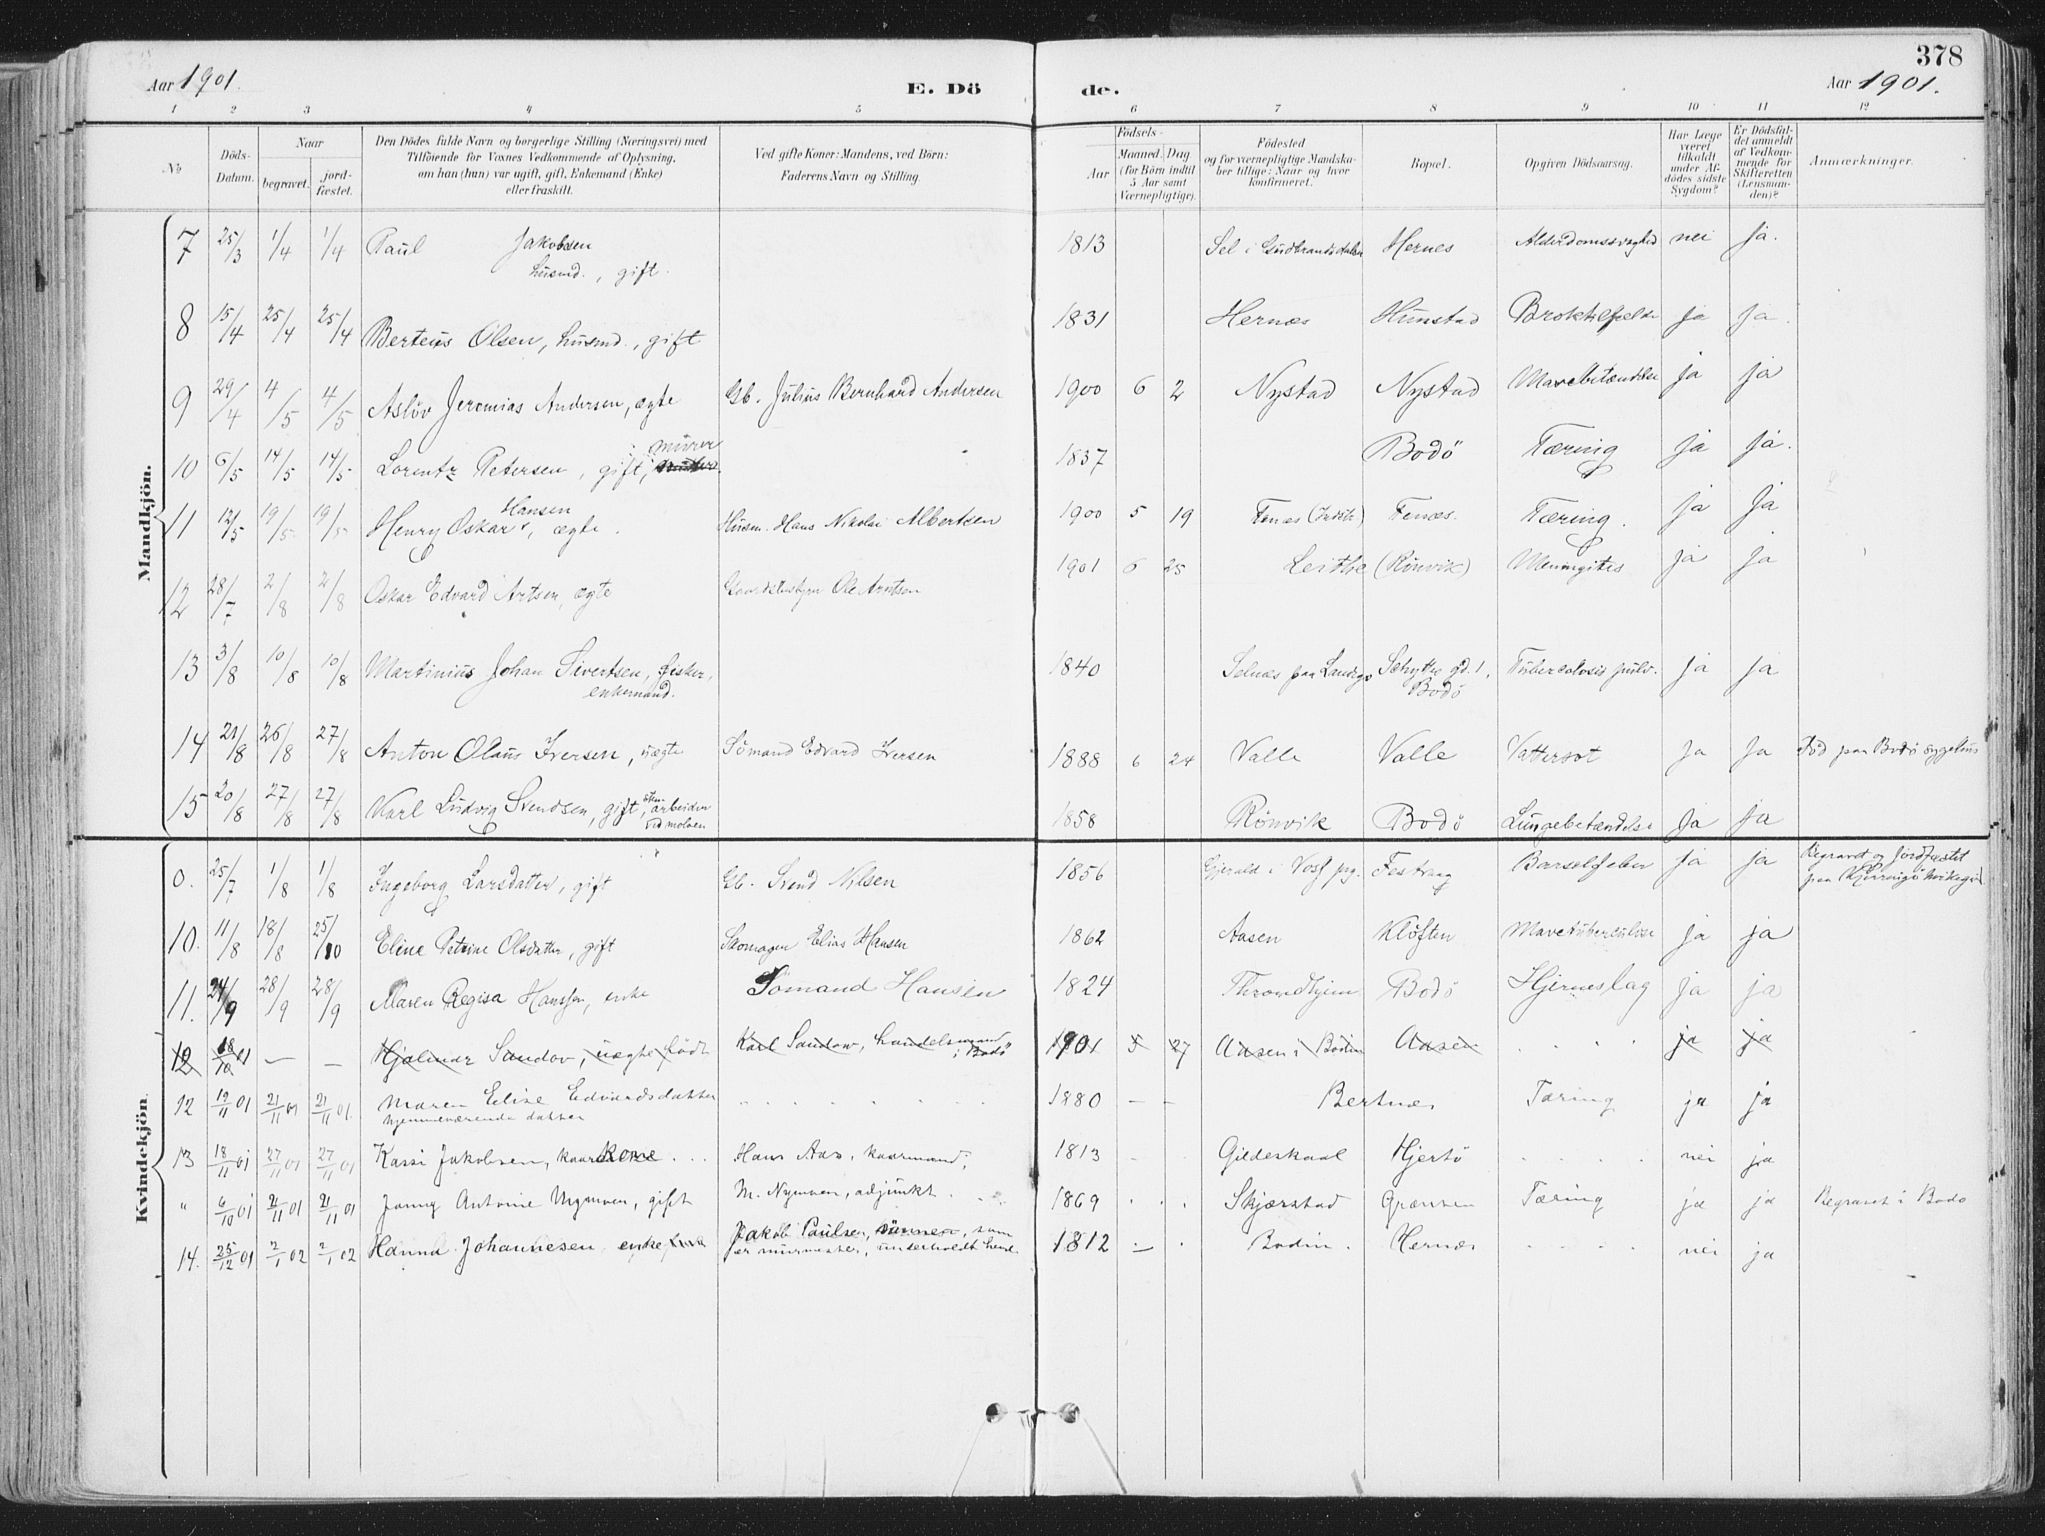 378
Aar 1901.
E. Dö
de.
Aar 1901.
1 2 3 4 5 6 7 8 9 10 11 12
No
Döds-
Datum.
Naar
begravet.
jord-
fæstet.
Den Dödes fulde Navn og borgerlige Stilling (Næringsvei) med
Tilföiende for Voxnes Vedkommende af Oplysning,
om han (hun) var ugift, gift, Enkemand (Enke)
eller fraskilt.
Ved gifte Koner: Mandens, ved Börn:
Faderens Navn og Stilling.
Födsels-
Aar
Maaned. Dag
(for Börn indtil
5 Aar samt
Værnepligtige).
Födested
og for værnepligtige Mandska-
ber tillige: Naar og hvor
konfirmeret.
Bopæl.
Opgiven Dödsaarsag.
Har Læge
været
tilkaldt
under Af-
dödes sidste
Sygdom?
Er Dödsfal-
det anmeldt
af Vedkom-
mende for
Skifteretten
(Lensman-
den)?
Anmærkninger.
Mandkjön.
7 25/3 1/4 1/4 Paul Jakobsen 1813 Sel i Gudbrandsdalen Hernes Alderdomssvaghed nei ja.
husmd., gift.
8 15/4 25/4 25/4 Berteus Olsen, husmd., gift 1831 Hernæs Hunstad ja ja.
9 29/4 4/5 4/5 Aslöv Jeremias Andersen, ægte Gb. Julius Bernhard Andersen 1900 6 2 Nystad Nystad Mavebetændelse ja ja
murer
10 6/5 14/5 14/5 Lorentz Petersen, gift, 1837 Bodö Tæring ja ja.
Hansen
11 12/5 19/5 19/5 Henry Oskar, ægte. Husm. Hans Nikolai Albertsen 1900 5 19 Fenæs Fenæs. Tæring. ja ja
12 28/7 2/8 2/8 Oskar Edvard Artsen, ægte Ole Arntsen 1901 6 25 Leithe (Rönvik) Meningites ja ja
13 3/8 10/8 10/8 Martinius Johan Sivertsen, fisker, 1840 Selnæs paa Landego Tuberculosis pulv. ja ja
enkemand. Bodö
14 21/8 26/8 27/8 Anton Olaus Iversen, uægte Sömand Edvard Iversen 1888 6 24 Valle Valle Vattersot ja ja Död paa Bodö sygehus
15 20/8 27/8 27/8 Karl Ludvig Svendsen, gift, sten-arbeider 1858 Rönvik Bodö Lungebetændelse ja ja
ved moloen
Kvindekjön.
25/7 1/8 1/8 Ingeborg Larsdatter, gift Gb. Svend Nilsen 1856 i Voss prg. Festvaag Barselfeber ja ja Begravet og jordfæstet
paa
10. 11/8 18/8 25/10 Eline Petrine Olsdatter, gift Skomager Elias Hansen 1862 Aasen Klöften Mavetuberculose ja ja
11. 24/9 28/9 28/9 Maren Regisa Hanssen, enke Sömand Hansen 1824 Throndhjem Bodö Hjerneslag ja ja
12 18/10 01 — — Hjalmar Sandov, uægte födt Karl Sandow, handelsmand 1901 5 27 Aasen i Bodin Aasen . . . . ja ja
i Bodö
12 19/11 01 21/11 01 21/11 01. Maren Elise Edvardsdatter . . . . . . . 1880 — — Bertnæs Tæring ja ja
hjemmeværende datter
13 18/11 01 27/11 01 27/11 01 Kassi Jakobsen, kaarkone . . . Hans Aas, kaarmand, 1813 - - Gildeskaal Hjertö . . . . . nei ja
" 6/10 01 21/11 01 21/11 01 Jonny Antonie Nymoen, gift M. Nymoen, adjunkt . . . 1869 . . . Skjærstad Grænsen Tæring ja ja Begravet i Bodö
14. 25/12 01 2/1 02 2/1 02 Hanna Johannesen, enke Jakob Paulsen, sönnen, som 1812 . — . Bodin. Hernæs . . . . nei ja
er murmester, underholdt hende.